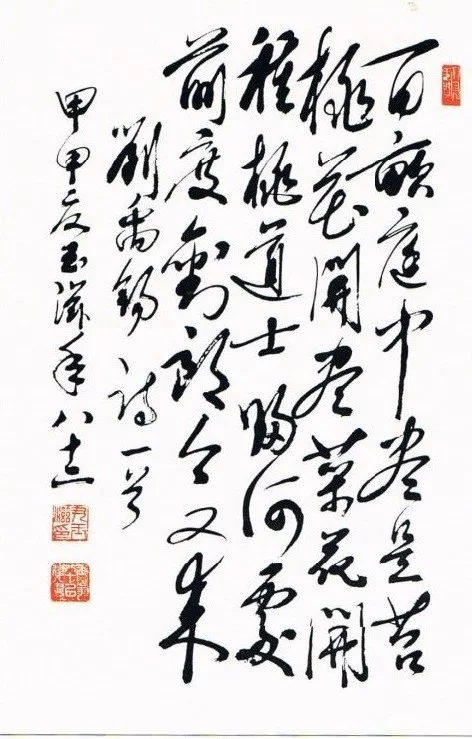 百畝庭中尽是苔
桃花開尽菜花開
種桃道士歸何處
前度劉郎今又来
劉禹錫詩一首
甲申夏玉年八十